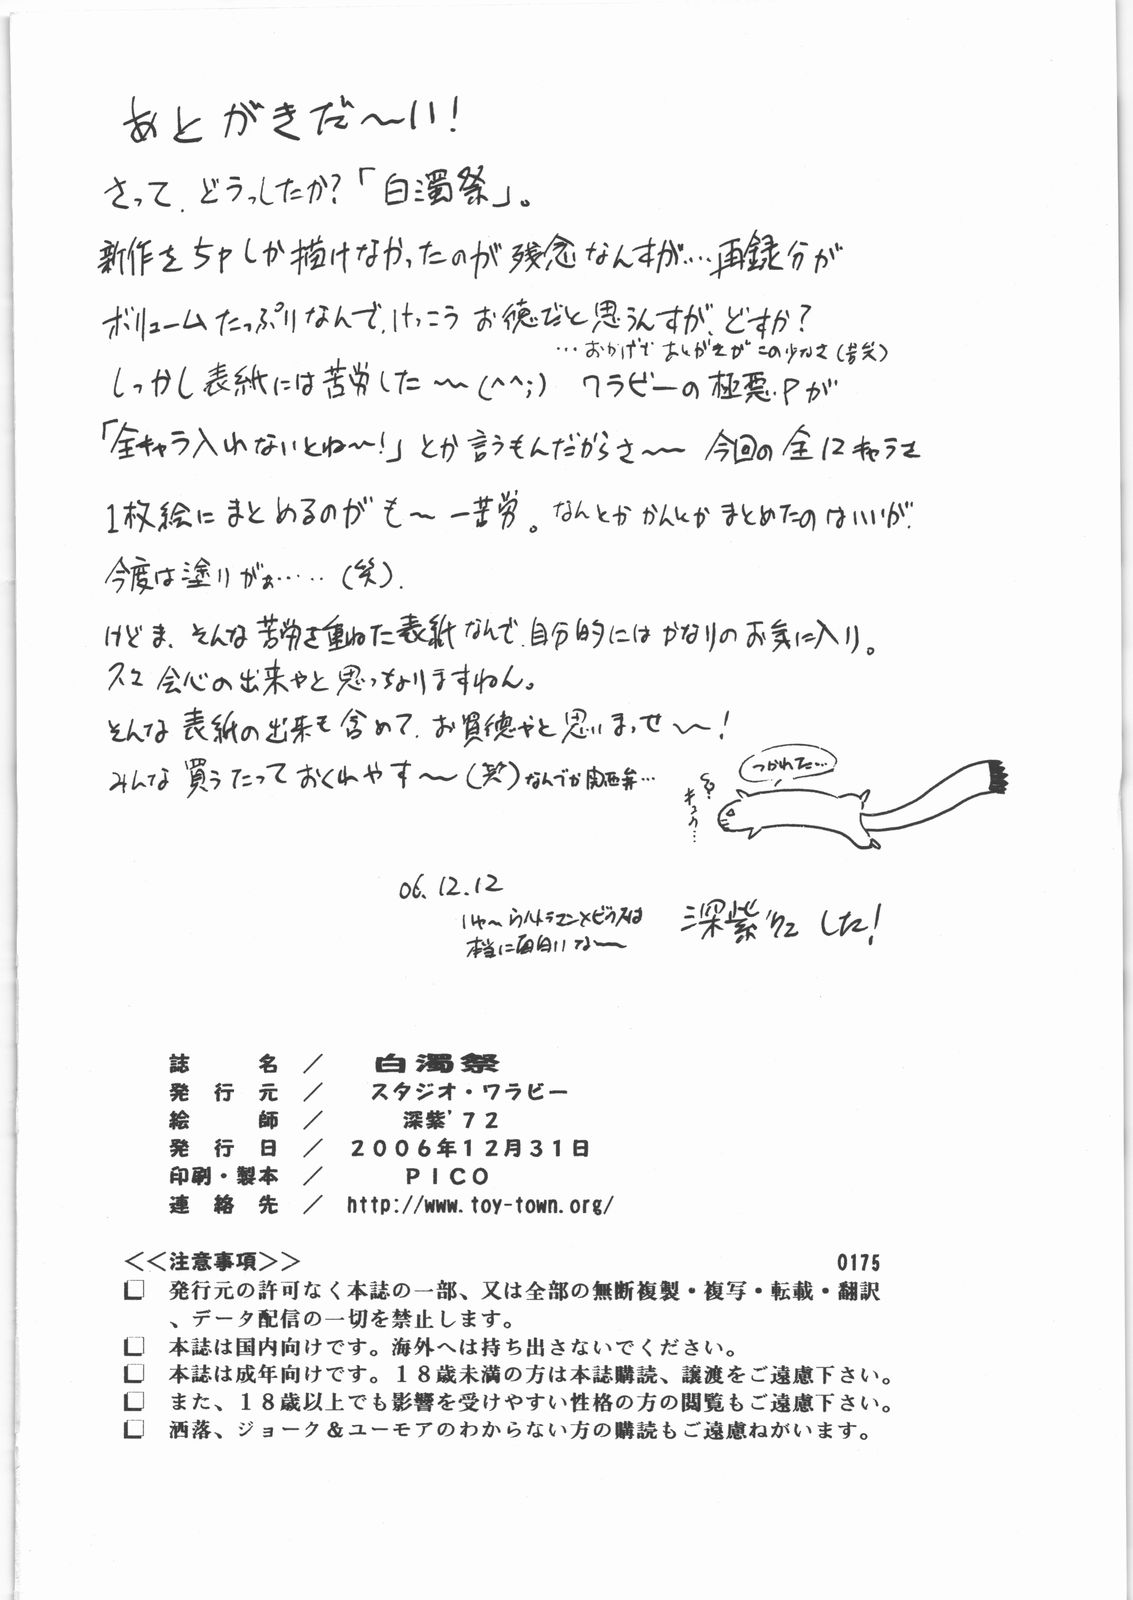 あとがきだ〜い!
さって、どうっしたか?「白濁祭」。
新作をちょしか描けなかったのが残念なんすが…再録分が
ボリュームたっぷりなんで、けっこうお徳だと思うんすが、どすか?
…おかげであとがきがこの少なさ(苦笑)
しっかし表紙には苦労した〜〜(^^;) ワラビーの極悪Pが
「全キャラ入れないとね〜!」とか言うもんだからさ〜〜 今回の全12キャラを
1枚絵にまとめるのがも〜一苦労。なんとかかんとかまとめたのはいいが、
今度は塗りがぁ……(笑).
けどま、そんな苦労を重ねた表紙なんで、自分的にはかなりのお気に入り。
会心の出来やと思っちょりますねん。
そんな表紙の出来も含めて、お買徳やと思いまっせ〜〜!
みんな買うたっておくれやす〜〜(笑)なんでか関西弁…
つかれた…
キュウ…
06.12.12
いや〜ウルトラマンメビウスは
本当に面白いな〜〜
深紫'72 した!
誌名／白濁祭
発行元／スタジオ・ワラビー
絵師／深紫'72
発行日／2006年12月31日
印刷・製本／PICO
連絡先／http://www.toy-town.org/
<<注意事項>> 0175
□ 発行元の許可なく本誌の一部、又は全部の無断複製・複写・転載・翻訳
、データ配信の一切を禁止します。
□ 本誌は国内向けです。海外へは持ち出さないでください。
□ 本誌は成年向けです。18歳未満の方は本誌購読、譲渡をご遠慮下さい。
□ また、18歳以上でも影響を受けやすい性格の方の閲覧もご遠慮下さい。
□ 洒落、ジョーク＆ユーモアのわからない方の購読もご遠慮ねがいます。